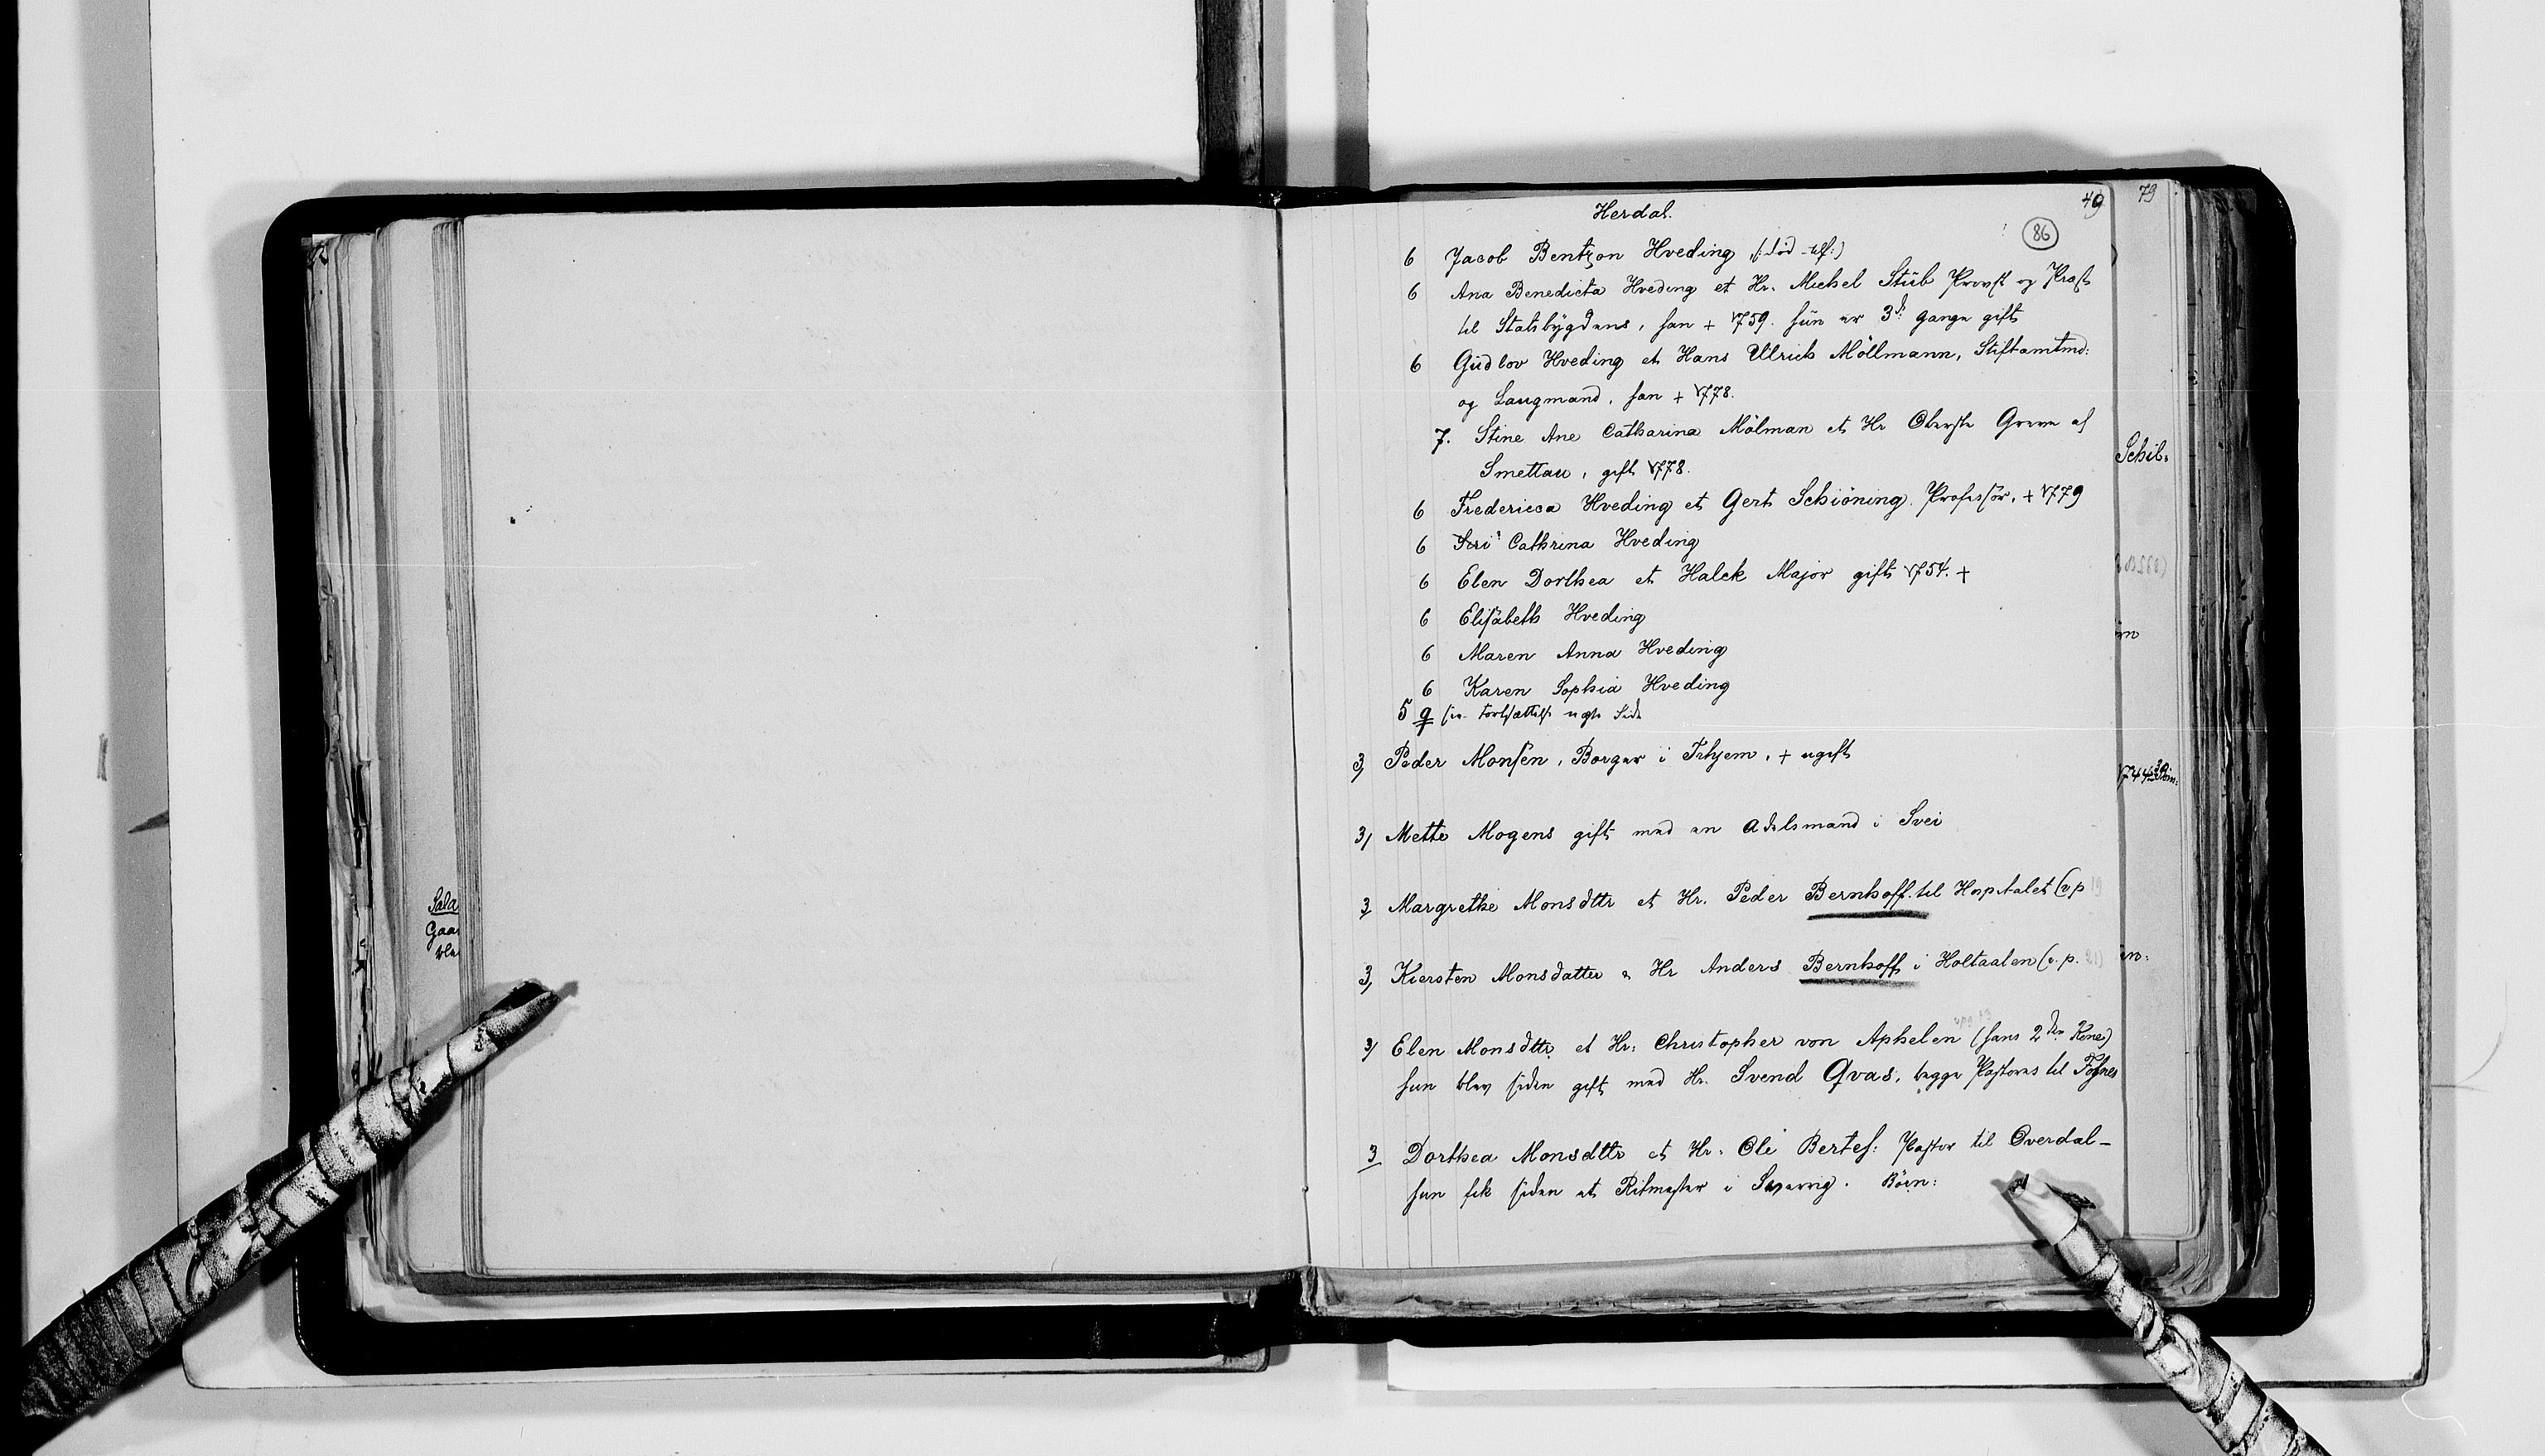 Sala
Gaa
blev
Herdal.
49
79
86
6 Jacob Bentzon Hveding
6 Ana Benedicta Hveding et Hr. Michel Stüb Provst og Præst
til Statsbÿgdens, han + 1759. hun er 3de gange gift
6 Gudlov Hveding et Hans Ulrich Möllmann, Stiftamtmd:
og Laugmand, han + 1778.
7. Stine Ane Catharina Mölman et Hr Oberste Greve af
Smettau, gift 1778.
6 Fredericca Hveding et Gert Schiöning. Professor, + 1779
6 Siri Cathrina Hveding
6 Elen Dorthea et Halck Major gift 1754. +
6 Elisabeth Hveding
6 Maren Anna Hveding
6 Karen Sophia Hveding
5 9 Fortsættelse Side
3) Peder Monsen, Borger i Trhjem, + ugift
3) Mette Mogens gift med en Adelsmand i Svei
3 Margrethe Monsdttr et Hr. Peder Bernhoff. til Hospitalet (v p 19
3) Kiersten Monsdatter & Hr Anders Bernhoff i Holtaalen (v. p. 21)
3) Elen Monsdttr et Hr: Christopher von Aphelen (hans 2den Kone)
hun blev siden gift med Hr. Svend Qvas, begge Pastores til Fosnes
3 Dorthea Monsdttr et Hr. Ole Bertes: Pastor til Overdal-
hun fik siden et Ritmester i Sverrig. Börn:
Schil:
1744
en: